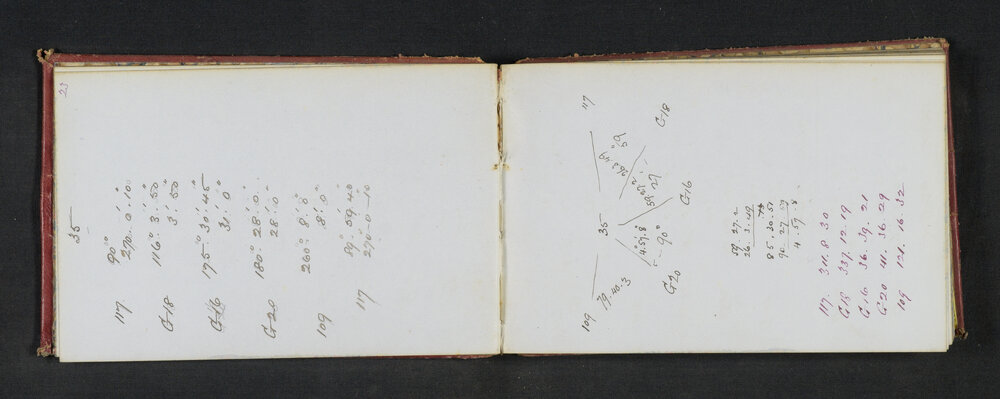 23
35
117 90°
270°. 0'. 10"
G18 116° 3'. 50"
3'. 50"
G16 175° 30'. 45"
31'. 0"
G20 180° 28'. 0
28'. 0
109 260° 8'. 0"
8'. 0"
117 89°. 59'. 40
270-0-10
117
26.3.49
G18
35
59.27.2
G16
4.57.8
90°
G20
109
79.40.3
59 27.2
26. 3.49
85.30.51
90 27 59
4.57.8
117. 311.8.30
G18 337.12.19
G16 36.39.21
G20 41.36.29
109 121.16.32